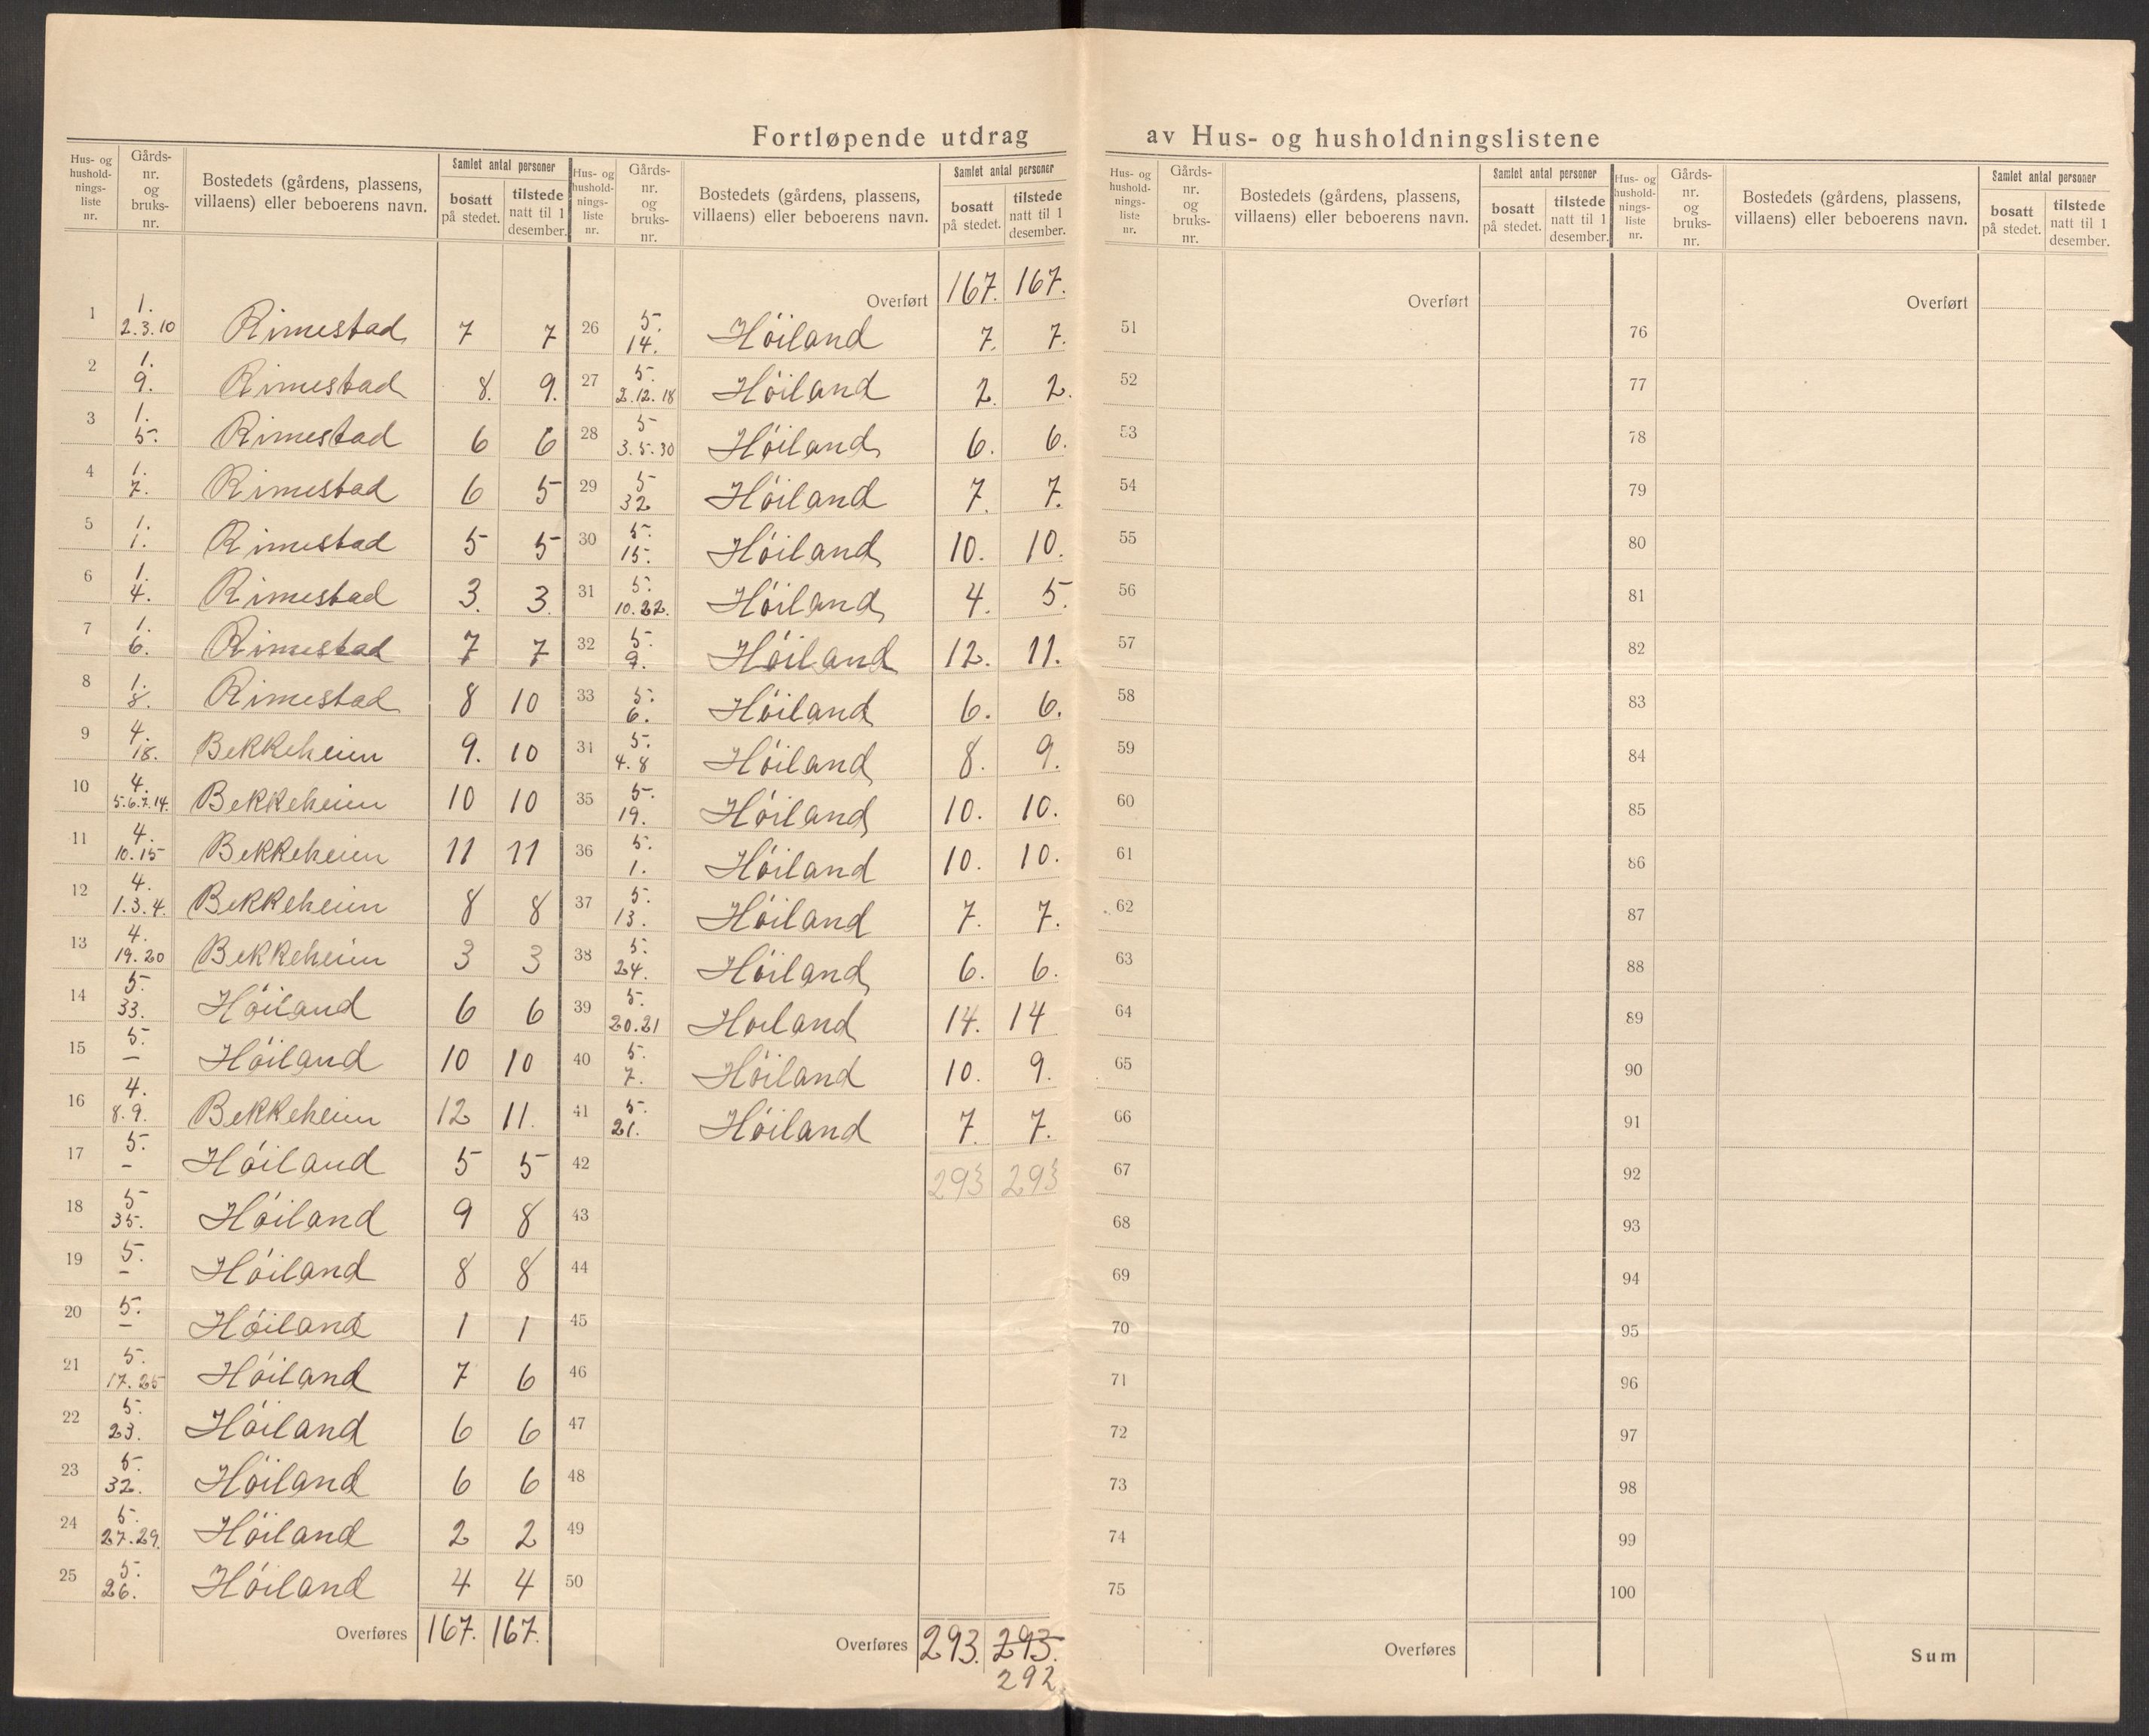 Fortløpende utdrag av Hus- og husholdningslistene
Hus- og hushold-nings-liste nr. | Gårds-nr. og bruks-nr. | Bostedets (gårdens, plassens, villaens) eller beboerens navn. | Samlet antal personer | bosatt på stedet. | tilstede natt til 1 desember.
1 | 1. 2.3.10 | Rimestad | 7 | 7
2 | 1. 9. | Rimestad | 8. | 9.
3 | 1. 5. | Rimestad | 6 | 6
4 | 1. 7. | Rimestad | 6 | 5
5 | 1. 1. | Rimestad | 5 | 5
6 | 1. 4. | Rimestad | 3. | 3.
7 | 1. 6. | Rimestad | 7 | 7
8 | 1. 8. | Rimestad | 8 | 10
9 | 4. 18. | Bekkeheien | 9. | 10
10 | 4. 5.6.7.14. | Bekkeheien | 10 | 10
11 | 4. 10.15 | Bekkeheien | 11 | 11
12 | 4. 1.3.4. | Bekkeheien | 8 | 8
13 | 4. 19.20 | Bekkeheien | 3 | 3
14 | 5. 33. | Höiland | 6 | 6
15 | 5. — | Höiland | 10 | 10
16 | 4. 8.9. | Bekkeheien | 12 | 11.
17 | 5. – | Höiland | 5 | 5
18 | 5 35. | Höiland | 9 | 8
19 | 5. – | Höiland | 8 | 8
20 | 5. – | Höiland | 1 | 1
21 | 5. 17.25 | Höiland | 7 | 6
22 | 5. 23. | Höiland | 6 | 6
23 | 5. 32. | Höiland | 6 | 6
24 | 5. 27.29. | Höiland | 2 | 2
25 | 5. 26. | Höiland | 4 | 4
Overføres | 167. | 167.
Hus- og hushold-nings-liste nr. | Gårds-nr. og bruks-nr. | Bostedets (gårdens, plassens, villaens) eller beboerens navn. | Samlet antal personer | bosatt på stedet. | tilstede natt til 1 desember.
Overført | 167. | 167.
26 | 5. 14. | Höiland | 7. | 7.
27 | 5. 2.12.18 | Höiland | 2. | 2.
28 | 5 3.5.30 | Höiland | 6. | 6.
29 | 5 32 | Höiland | 7. | 7.
30 | 5. 15. | Höiland | 10. | 10.
31 | 5. 10.22. | Höiland | 4. | 5.
32 | 5. 9. | Höiland | 12. | 11.
33 | 5. 6. | Höiland | 6. | 6.
34 | 5. 4.8 | Höiland | 8. | 9.
35 | 5. 19. | Höiland | 10. | 10.
36 | 5. 1. | Höiland | 10. | 10.
37 | 5. 13. | Höiland | 7. | 7.
38 | 5. 24. | Höiland | 6. | 6.
39 | 5. 20.21 | Hoiland | 14. | 14
40 | 5. 7. | Höiland | 10. | 9.
41 | 5. 21. | Höiland | 7. | 7.
42 | 293 | 293
43
44
45
46
47
48
49
50
Overføres | 293. | 293.
292
Hus- og hushold-nings-liste nr. | Gårds-nr. og bruks-nr. | Bostedets (gårdens, plassens, villaens) eller beboerens navn. | Samlet antal personer | bosatt på stedet. | tilstede natt til 1 desember.
Overført
51
52
53
54
55
56
57
58
59
60
61
62
63
64
65
66
67
68
69
70
71
72
73
74
75
Overføres
Hus- og hushold-nings-liste nr. | Gårds-nr. og bruks-nr. | Bostedets (gårdens, plassens, villaens) eller beboerens navn. | Samlet antal personer | bosatt på stedet. | tilstede natt til 1 desember.
Overført
76
77
78
79
80
81
82
83
84
85
86
87
88
89
90
91
92
93
94
95
96
97
98
99
100
Sum